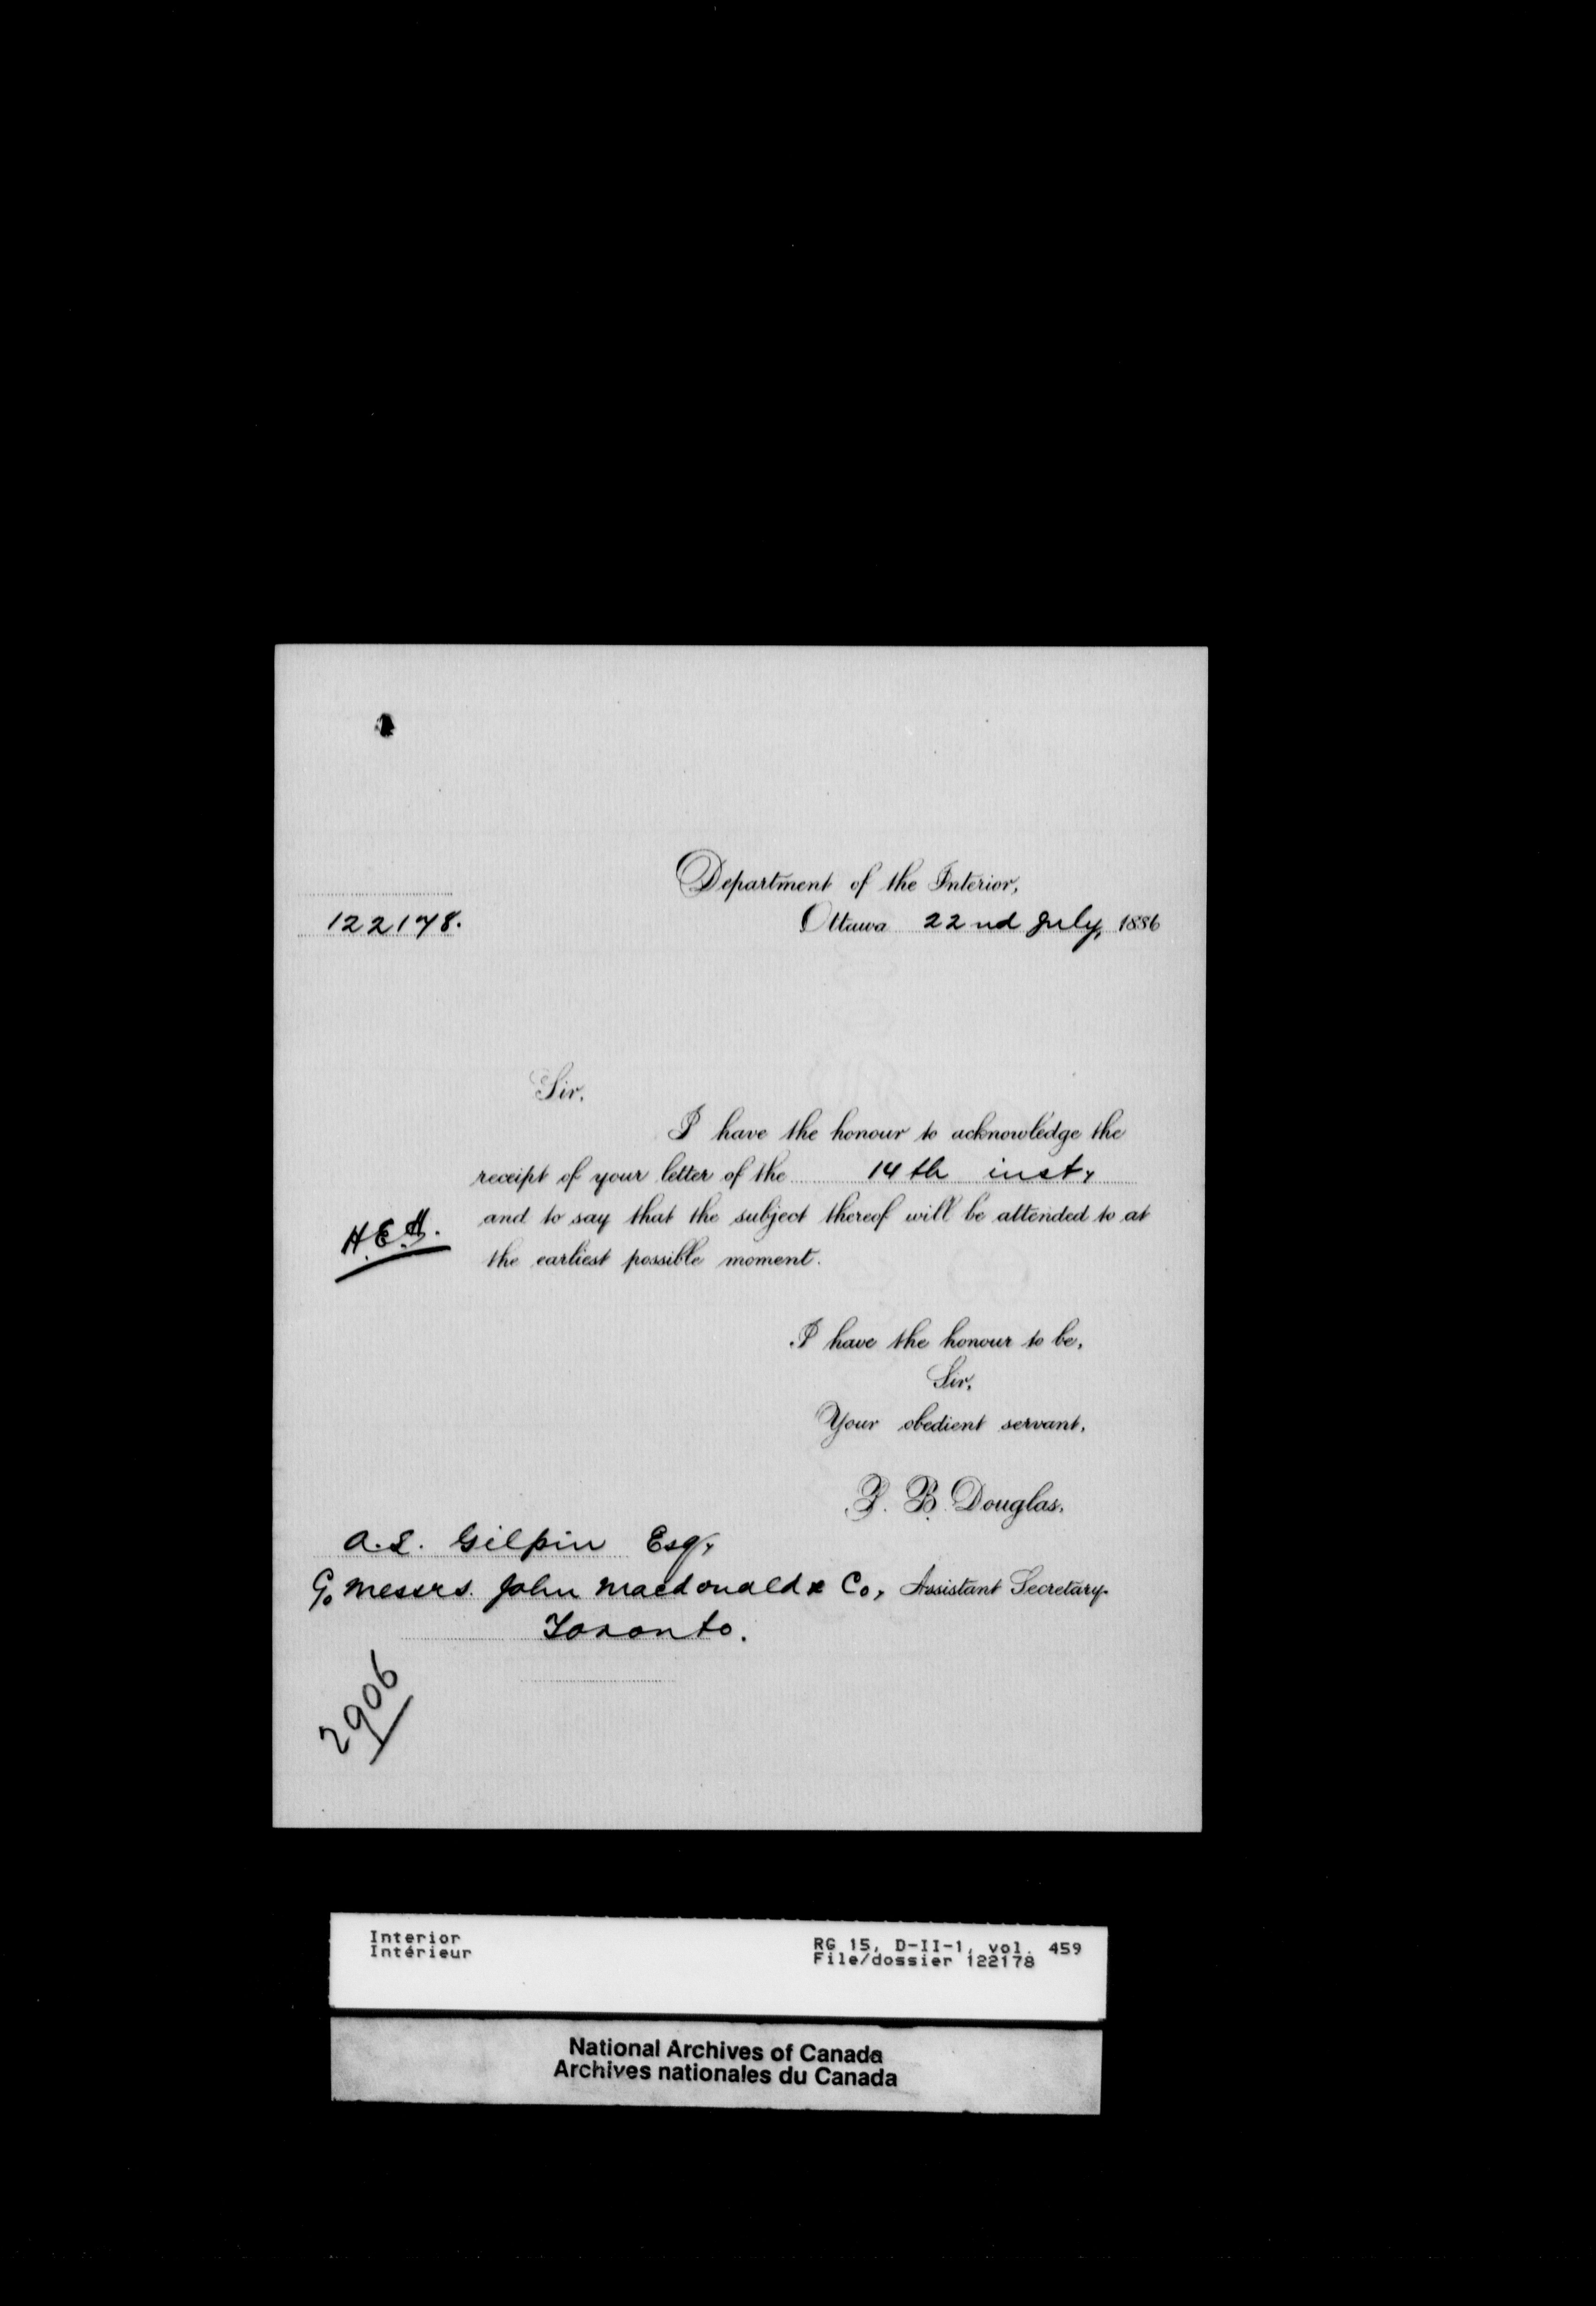 Department of the Interior,
122178.
Ottawa 22nd July, 1886
Sir,
I have the honour to acknowledge the
receipt of your letter of the 14th inst,
and to say that the subject thereof will be attended to at
the earliest possible moment.
H.E.H.
I have the honour to be,
Sir,
Your obedient servant,
P. B. Douglas,
Assistant Secretary.
A.S. Gilpin Esq,
c/o Messrs. John Macdonald & Co,
Toronto.
2906
Interior
Intérieur
RG 15, D-II-1, vol. 459
File/dossier 122178
National Archives of Canada
Archives nationales du Canada